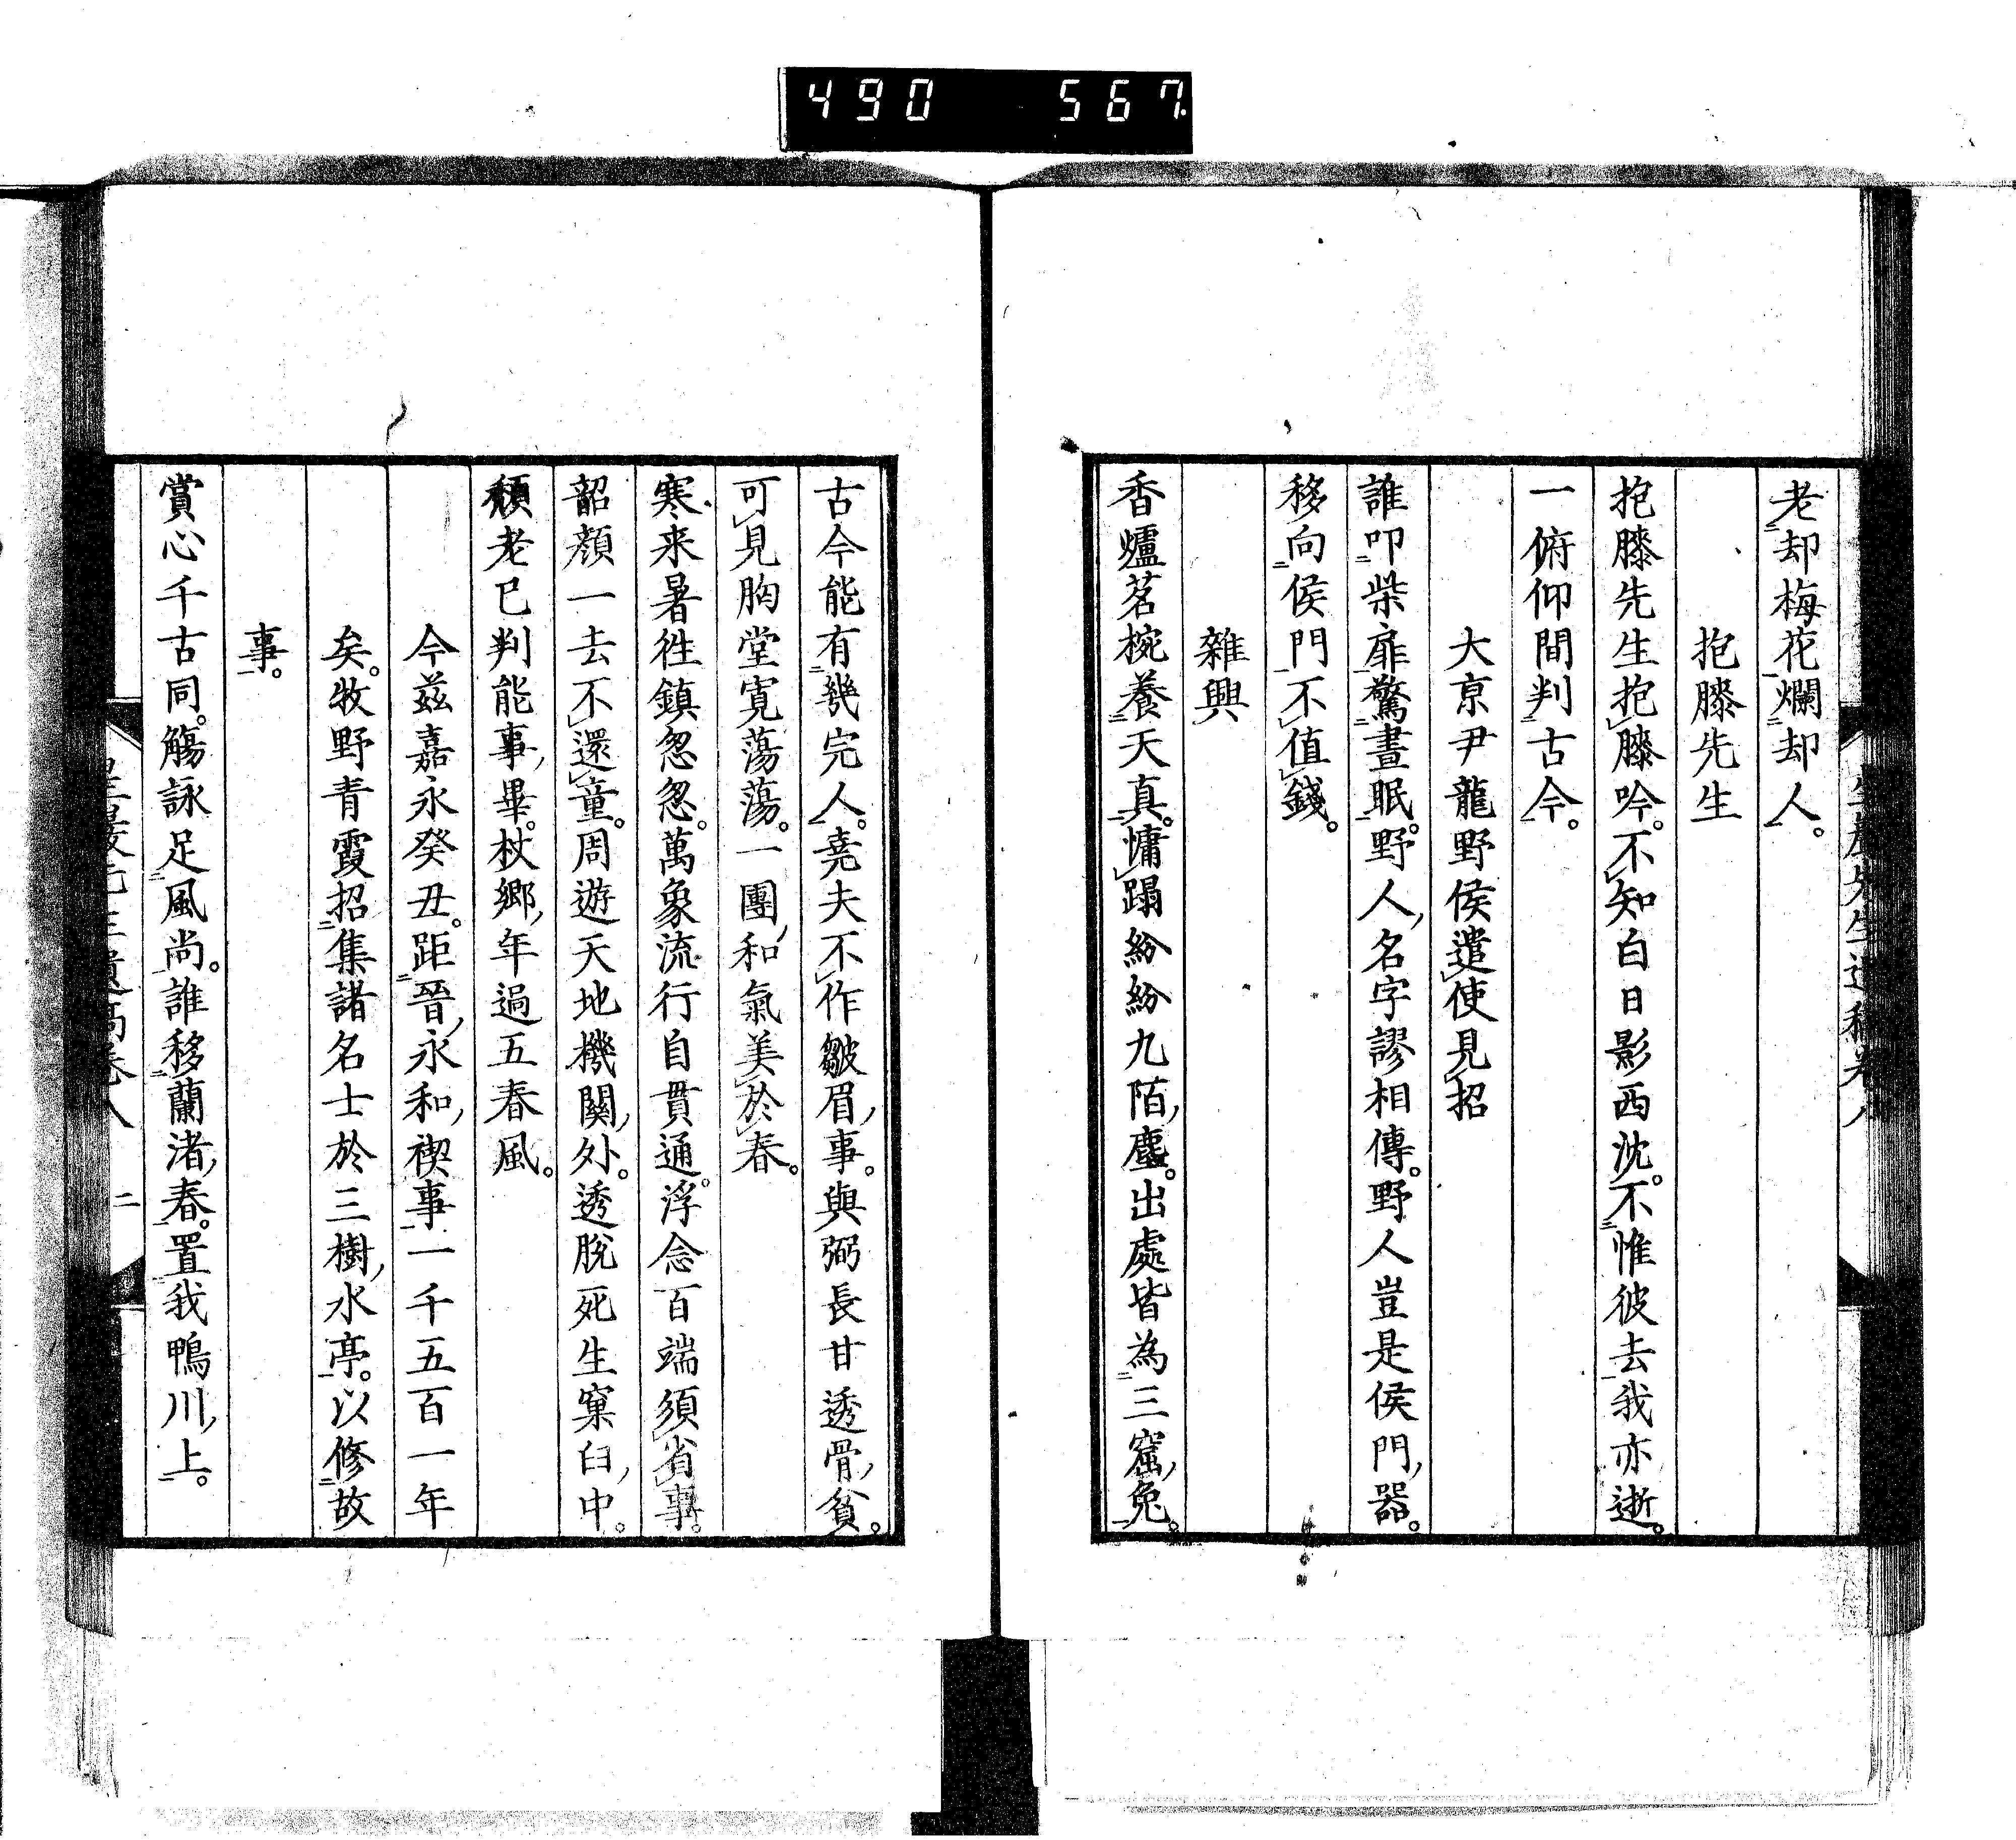 490 567
老却梅花爛却人。
抱膝先生
抱膝先生抱膝吟。不知白日影西沈。不惟彼去我亦逝。
一俯仰間判古今。
大京尹龍野侯遣使見招
誰叩柴扉驚晝眠。野人名字謬相傳。野人豈是侯門器。
移向侯門不值錢。
雜興
香爐茗椀養天真。慵蹋紛紛九陌塵。出處皆為三窟兔。
古今能有幾完人。堯夫不作皺眉事。與弼長甘透骨貧。
可見胸堂寬蕩蕩。一團和氣美於春。
寒来暑徃鎮怱怱。萬象流行自貫通。浮念百端須省事。
韶顏一去不還童。周遊天地機關外。透脫死生窠臼中。
頹老已判能事畢。杖鄉年過五春風。
今茲嘉永癸丑。距晉永和禊事一千五百一年
矣。牧野青霞招集諸名士於三樹水亭。以修故
事。
賞心千古同。觴詠足風尚。誰移蘭渚春。置我鴨川上。